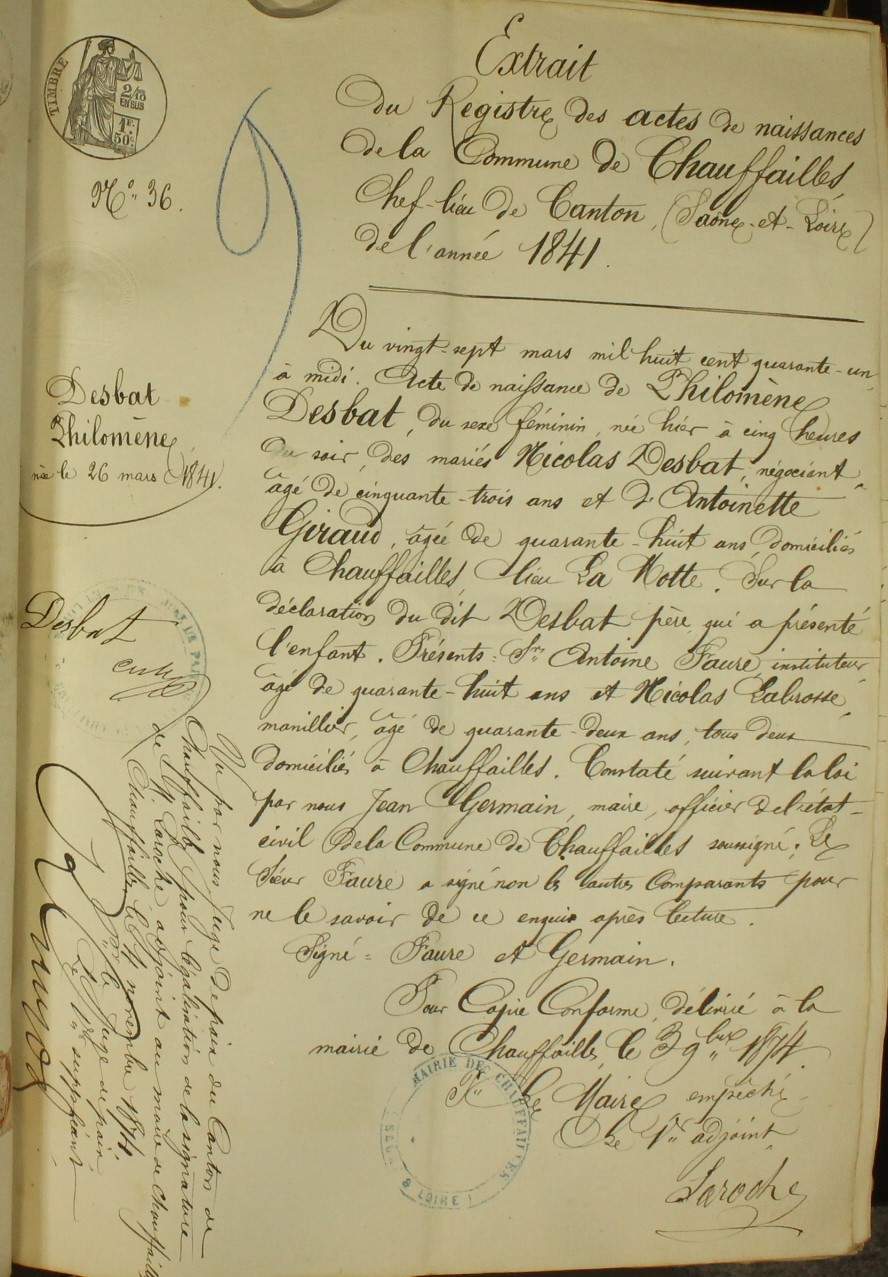 TIMBRE
2/10
EN SUS
1F.
50c.
N.° 36.
Extrait
du Registre des actes de naissances
de la Commune de Chauffailles,
Chef-lieu de Canton, (Saône-et-Loire)
de l'année 1841.
Du vingt-sept mars mil huit cent quarante-un
à midi. Acte de naissance de Philomène
Desbat, du sexe féminin, née hier à cinq heures
du soir, des mariés Nicolas Desbat, négociant
âgé de cinquante-trois ans et d'Antoinette
Giraud, âgée de quarante-huit ans, domiciliés
à Chauffailles, lieu La Motte. Sur la
déclaration du dit Desbat père, qui a présenté
l'enfant. Présents: Srs Antoine Faure, instituteur
âgé de quarante-huit ans et Nicolas Labrosse,
manillier, âgé de quarante-deux ans, tous deux
domiciliés à Chauffailles. Constaté suivant la loi
par nous Jean Germain, maire, officier de l'état-
civil de la Commune de Chauffailles soussigné. Le
Sieur Faure a signé non les autres Comparants pour
ne le savoir de ce enquis après lecture.
Signé = Faure et Germain.
Pour Copie Conforme, délivré à la
mairie de Chauffailles, le 3 9bre 1874.
Pr Le Maire empêché
Le 1er adjoint
Laroche
MAIRIE DE CHAUFFAILLES
LOIRE
Desbat
Philomène
née le 26 mars 1841.
Desbat
Vu par nous Juge de paix du Canton de
Chauffailles, pour légalisation de la signature
de M. Laroche adjoint au maire de Chauffailles
Chauffailles le 4 novembre 1874.
Pr le Juge de paix,
Le 1er suppléant